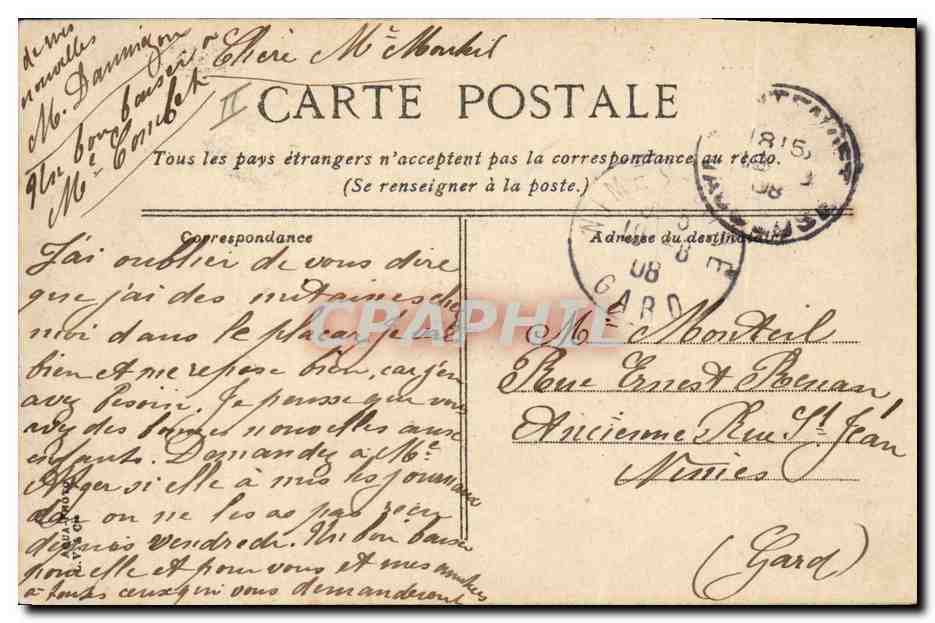 Chère Me Monteil
de mes
nouvelles
M. Daumigon
Un bon baiser
Me Combet
II
CARTE POSTALE
Tous les pays étrangers n'acceptent pas la correspondance au recto.
(Se renseigner à la poste.)
Correspondance
J'ai oublier de vous dire
que j'ai des mitaines chez
moi dans le placar je vai
bien et me repose bien, car j'en
avez besoin. Je pensse que vous
avez des bonnes nouvelles aux
enfants. Domandez à Me
Alger si elle à mis les journaux
car on ne les as pas reçu
depuis vendredi. Un bon baiser
pour elle et pour vous et mes amities
à touts ceux qui vous demanderont
AQUA-PHOTO
L.V. & Cie
Adresse du destinataire
NIMES
18 8
08
GARD
1815
08
Me Monteil
Rue Ernest Renan
Ancienne Rue St Jean
Nimes
(Gard)
CRAPHIL